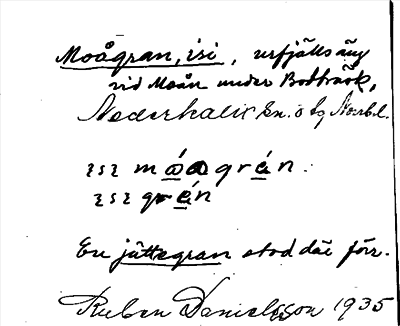 Moågran, isi, urfjällsäng
vid Moån under Bodträsk,
Nederkalix sn. o tg Norrb.l.
ısı mɷ́ɑgrán.
ısı grɛ́n
En jättegran stod där förr.
Ruben Danielsson 1935